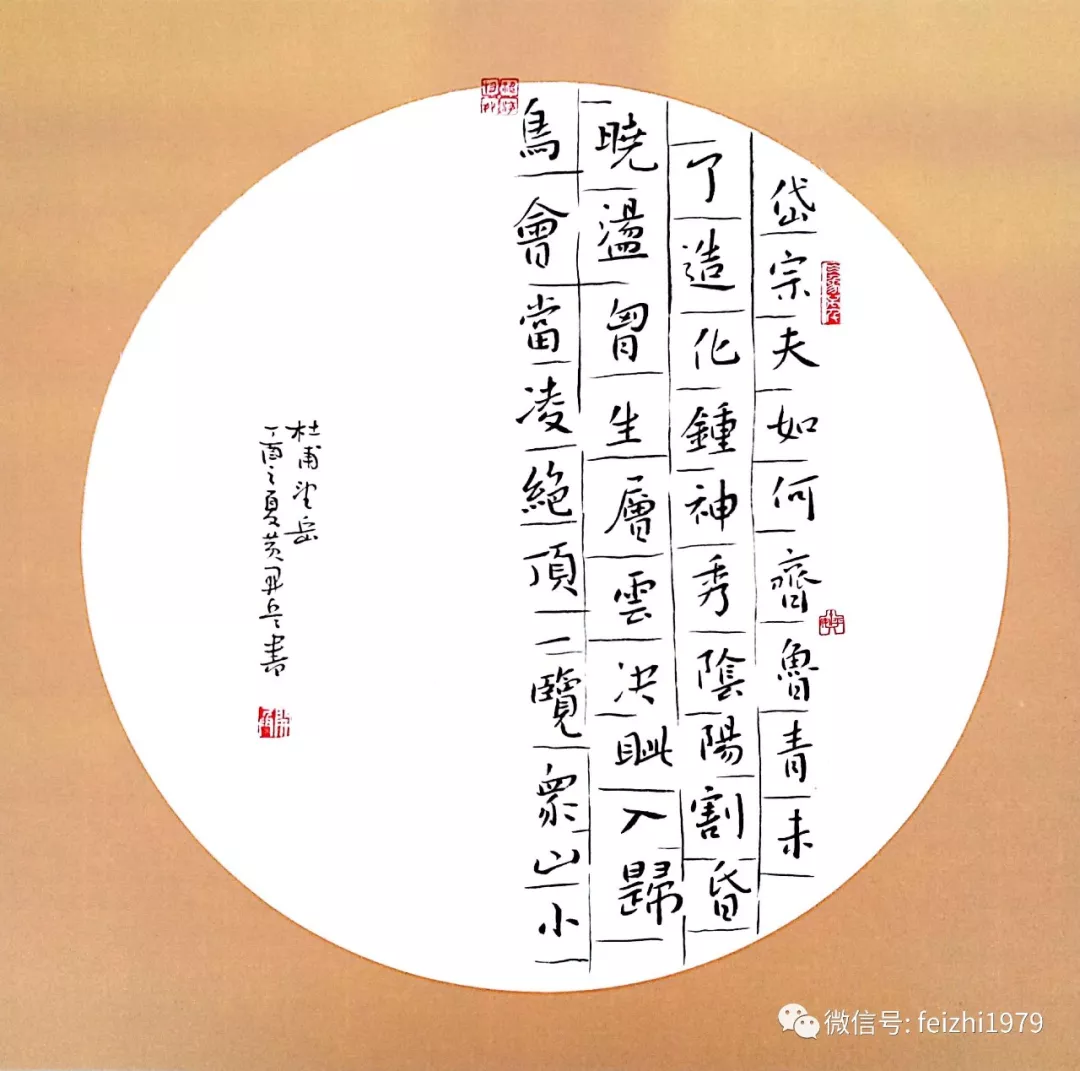 岱宗夫如何齊魯青未
了造化鍾神秀陰陽割昏
曉盪胷生層雲決眥入歸
鳥會當凌絕頂一覽衆山小
杜甫望岳
丁酉之夏黄開兵書
微信号: feizhi1979